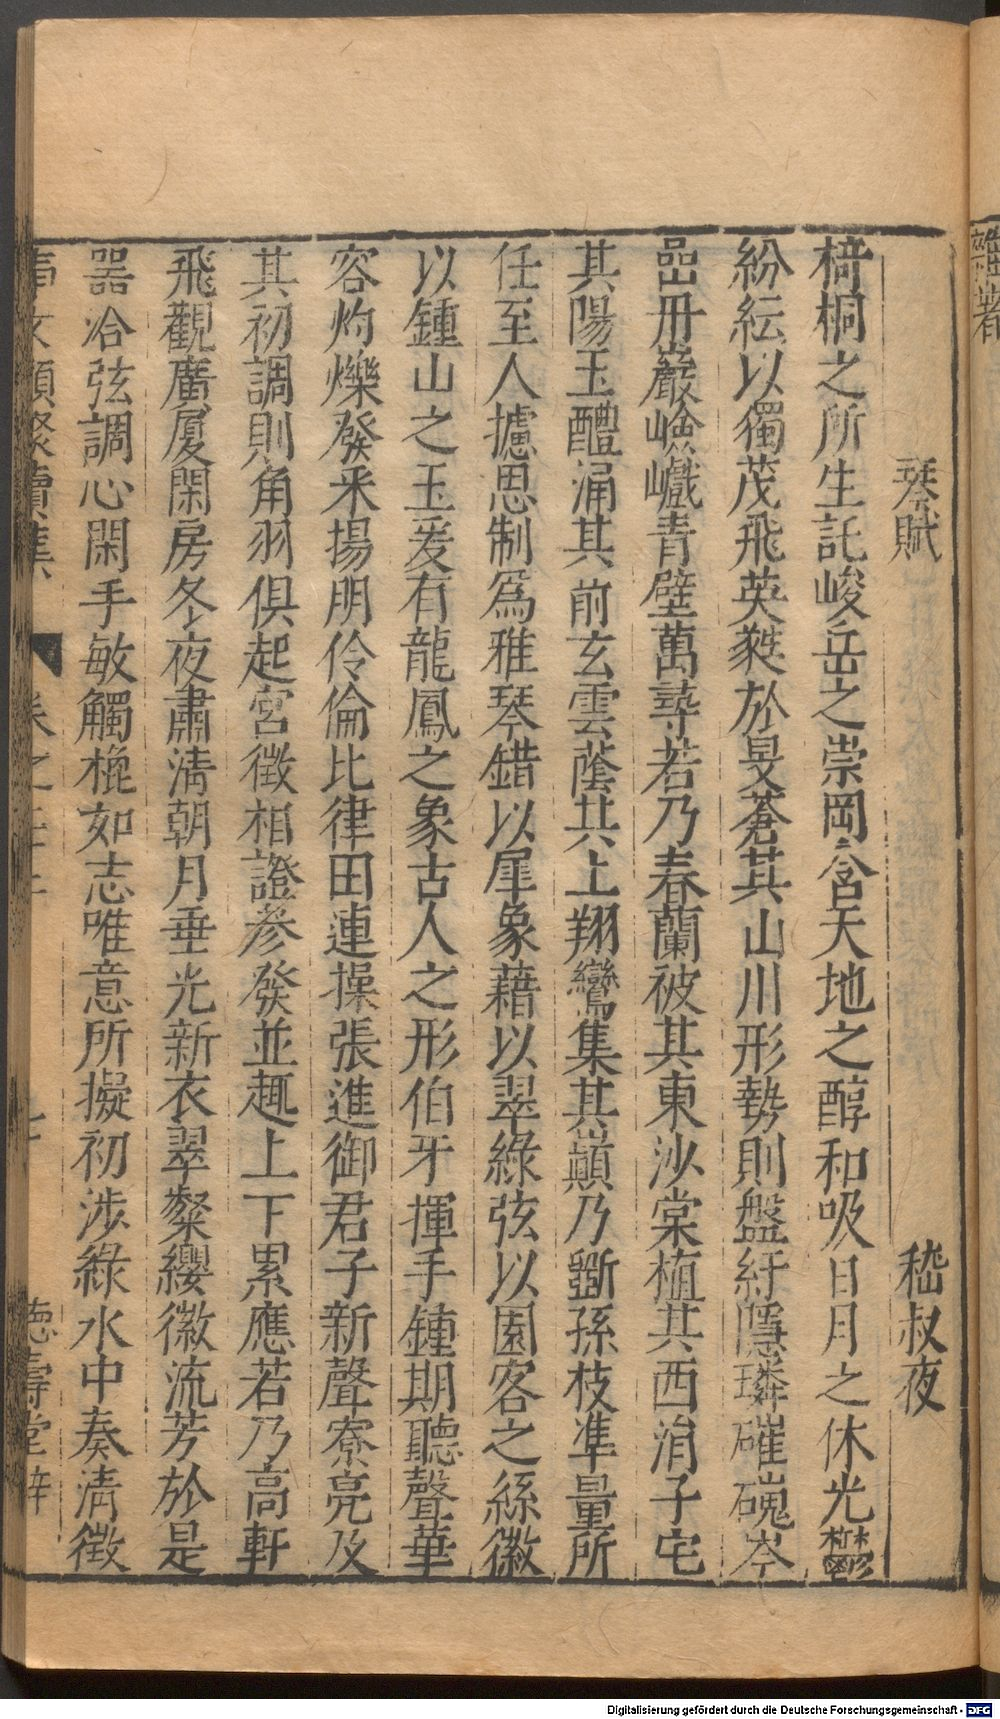 琴賦　嵇叔夜
椅桐之所生託峻岳之崇岡含天地之醇和吸日月之休光鬱
紛紜以獨茂飛英蕤於旻蒼其山川形勢則盤紆隱璘磪磈岑
嵒丹巖嶮巇青壁萬尋若乃春蘭被其東沙棠植其西涓子宅
其陽玉醴涌其前玄雲蔭其上翔鸞集其巔乃斵孫枝準量所
任至人攄思制為雅琴錯以犀象藉以翠綠弦以園客之絲徽
以鍾山之玉爰有龍鳳之象古人之形伯牙揮手鍾期聽聲華
容灼爍發釆揚明伶倫比律田連操張進御君子新聲寮亮及
其初調則角羽俱起宮徵相證參發並趣上下累應若乃高軒
飛觀廣廈閑房冬夜肅清朝月垂光新衣翠粲纓徽流芳於是
器冷弦調心閑手敏觸㧻如志唯意所擬初涉綠水中奏清徵
事文類聚續集　卷之二十二　德壽堂梓
雜著
Digitalisierung gefördert durch die Deutsche Forschungsgemeinschaft - DFG